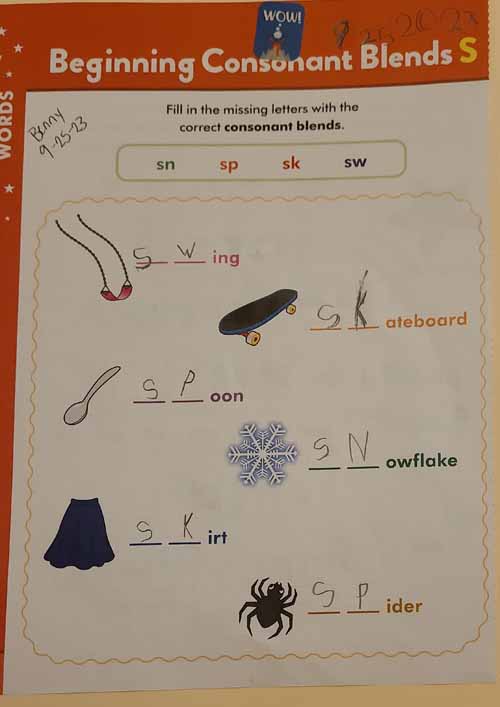 WOW!
9 25 2023
Beginning Consonant Blends S
WORDS
Benny
9-25-23
Fill in the missing letters with the
correct consonant blends.
sn sp sk sw
S W ing
S K ateboard
S P oon
S N owflake
S K irt
S P ider